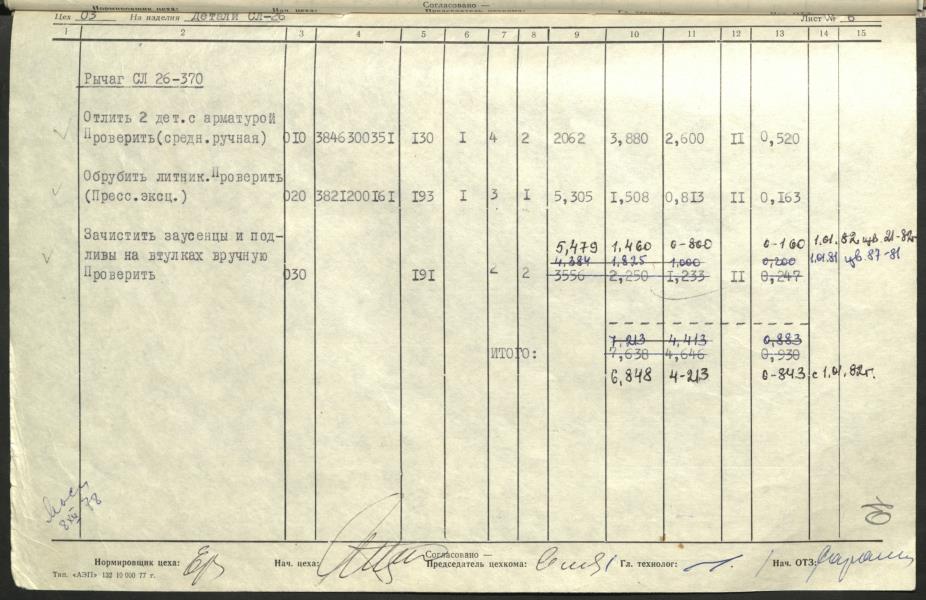 Нормировщик цеха: Нач. цеха: Согласовано — Председатель цехкома: Гл. технолог:
Цех 03 На изделия Детали СЛ-26 Лист № 6
1 2 3 4 5 6 7 8 9 10 11 12 13 14 15
Рычаг СЛ 26-370
Отлить 2 дет. с арматурой
Проверить(средн.ручная) 010 3846300351 130 I 4 2 2062 3,880 2,600 II 0,520
Обрубить литник.Проверить
(Пресс.эксц.) 020 3821200161 193 I 3 I 5,305 1,508 0,813 II 0,163
Зачистить заусенцы и под- 5,479 1,460 0-800 0-160 1.01.82 цв. 21-82г
ливы на втулках вручную 4,384 1,825 1,000 0,200 1.01.81 цв. 87-81
Проверить 030 191 2 2 3556 2,250 1,233 II 0,247
7,213 4,413 0,883
ИТОГО: 7,638 4,646 0,930
6,848 4-213 0-843 с 1.01.82г.
8 XII 78
Согласовано —
Нормировщик цеха: Нач. цеха: Председатель цехкома: Гл. технолог: Нач. ОТЗ:
Тип. «АЭП» 132 10 000 77 г.